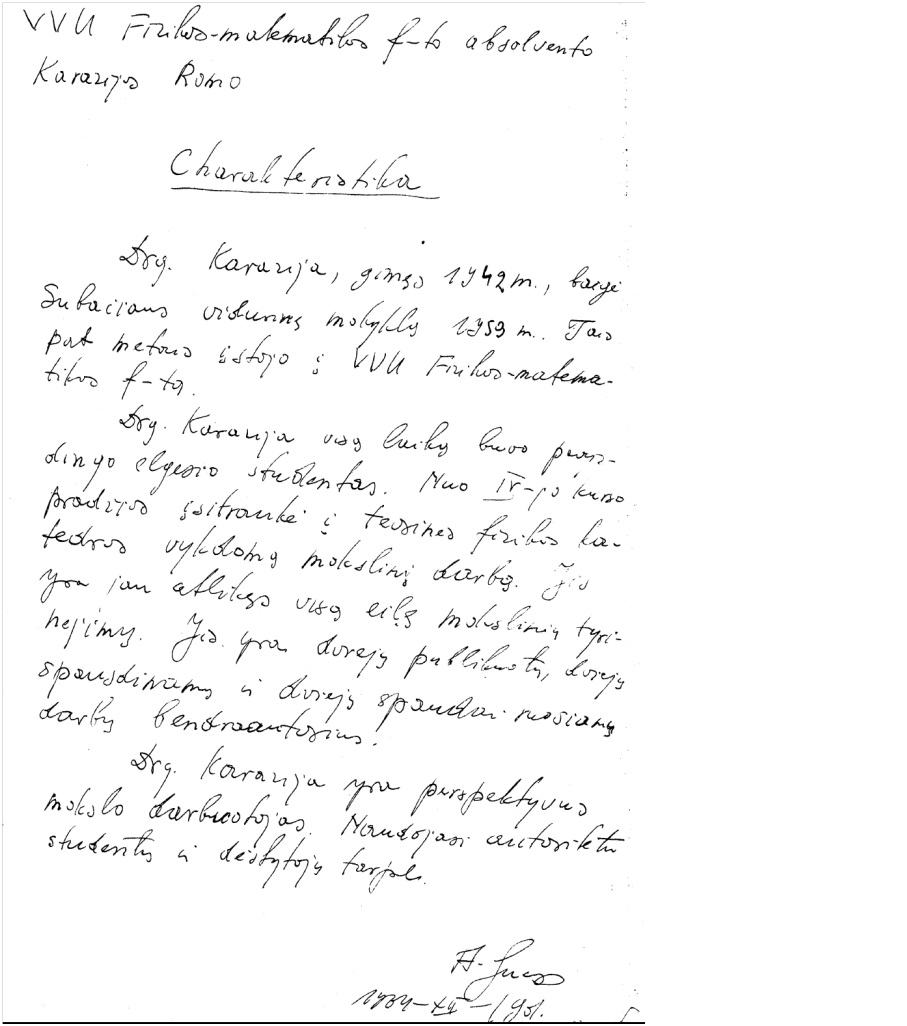 VVU Fizikos-matematikos f-to absolvento
Karazijos Romo
Charakteristika
Drg. Karazija, gimęs 1942 m., baigė
Subačiaus vidurinę mokyklą 1959 m. Tais
pat metais įstojo į VVU Fizikos-matema-
tikos f-tą.
Drg. Karazija visą laiką buvo pavyz-
dingo elgesio studentas. Nuo IV-jo kurso
pradžios įsitraukė į teorinės fizikos ka-
tedros vykdomą mokslinį darbą. Jis
yra jau atlikęs visą eilę mokslinių tyri-
nėjimų. Jis yra dviejų publikuotų, dviejų
spausdinamų ir dviejų spaudai ruošiamų
darbų bendraautorius.
Drg. Karazija yra perspektyvus
mokslo darbuotojas. Naudojasi autoritetu
studentų ir dėstytojų tarpe.